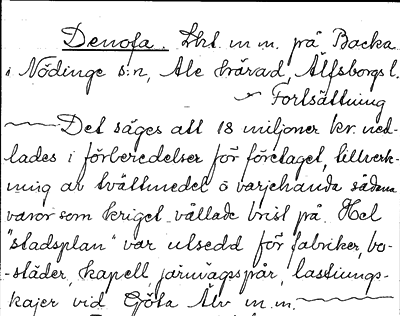 Denofa. Lkl. m.m. på Backa
i Nödinge s:n, Ale härad, Älfsborgs l.
Fortsättning
Det säges att 18 miljoner kr. ned-
lades i förberedelser för företaget, tillverk-
ning av tvättmedel o varjehanda sådana
varor som kriget vållade brist på. Hel
"stadsplan" var utsedd för fabriker, bo-
-städer, kapell, järnvägsspår, lastnings-
kajer vid Göta Älv m.m.